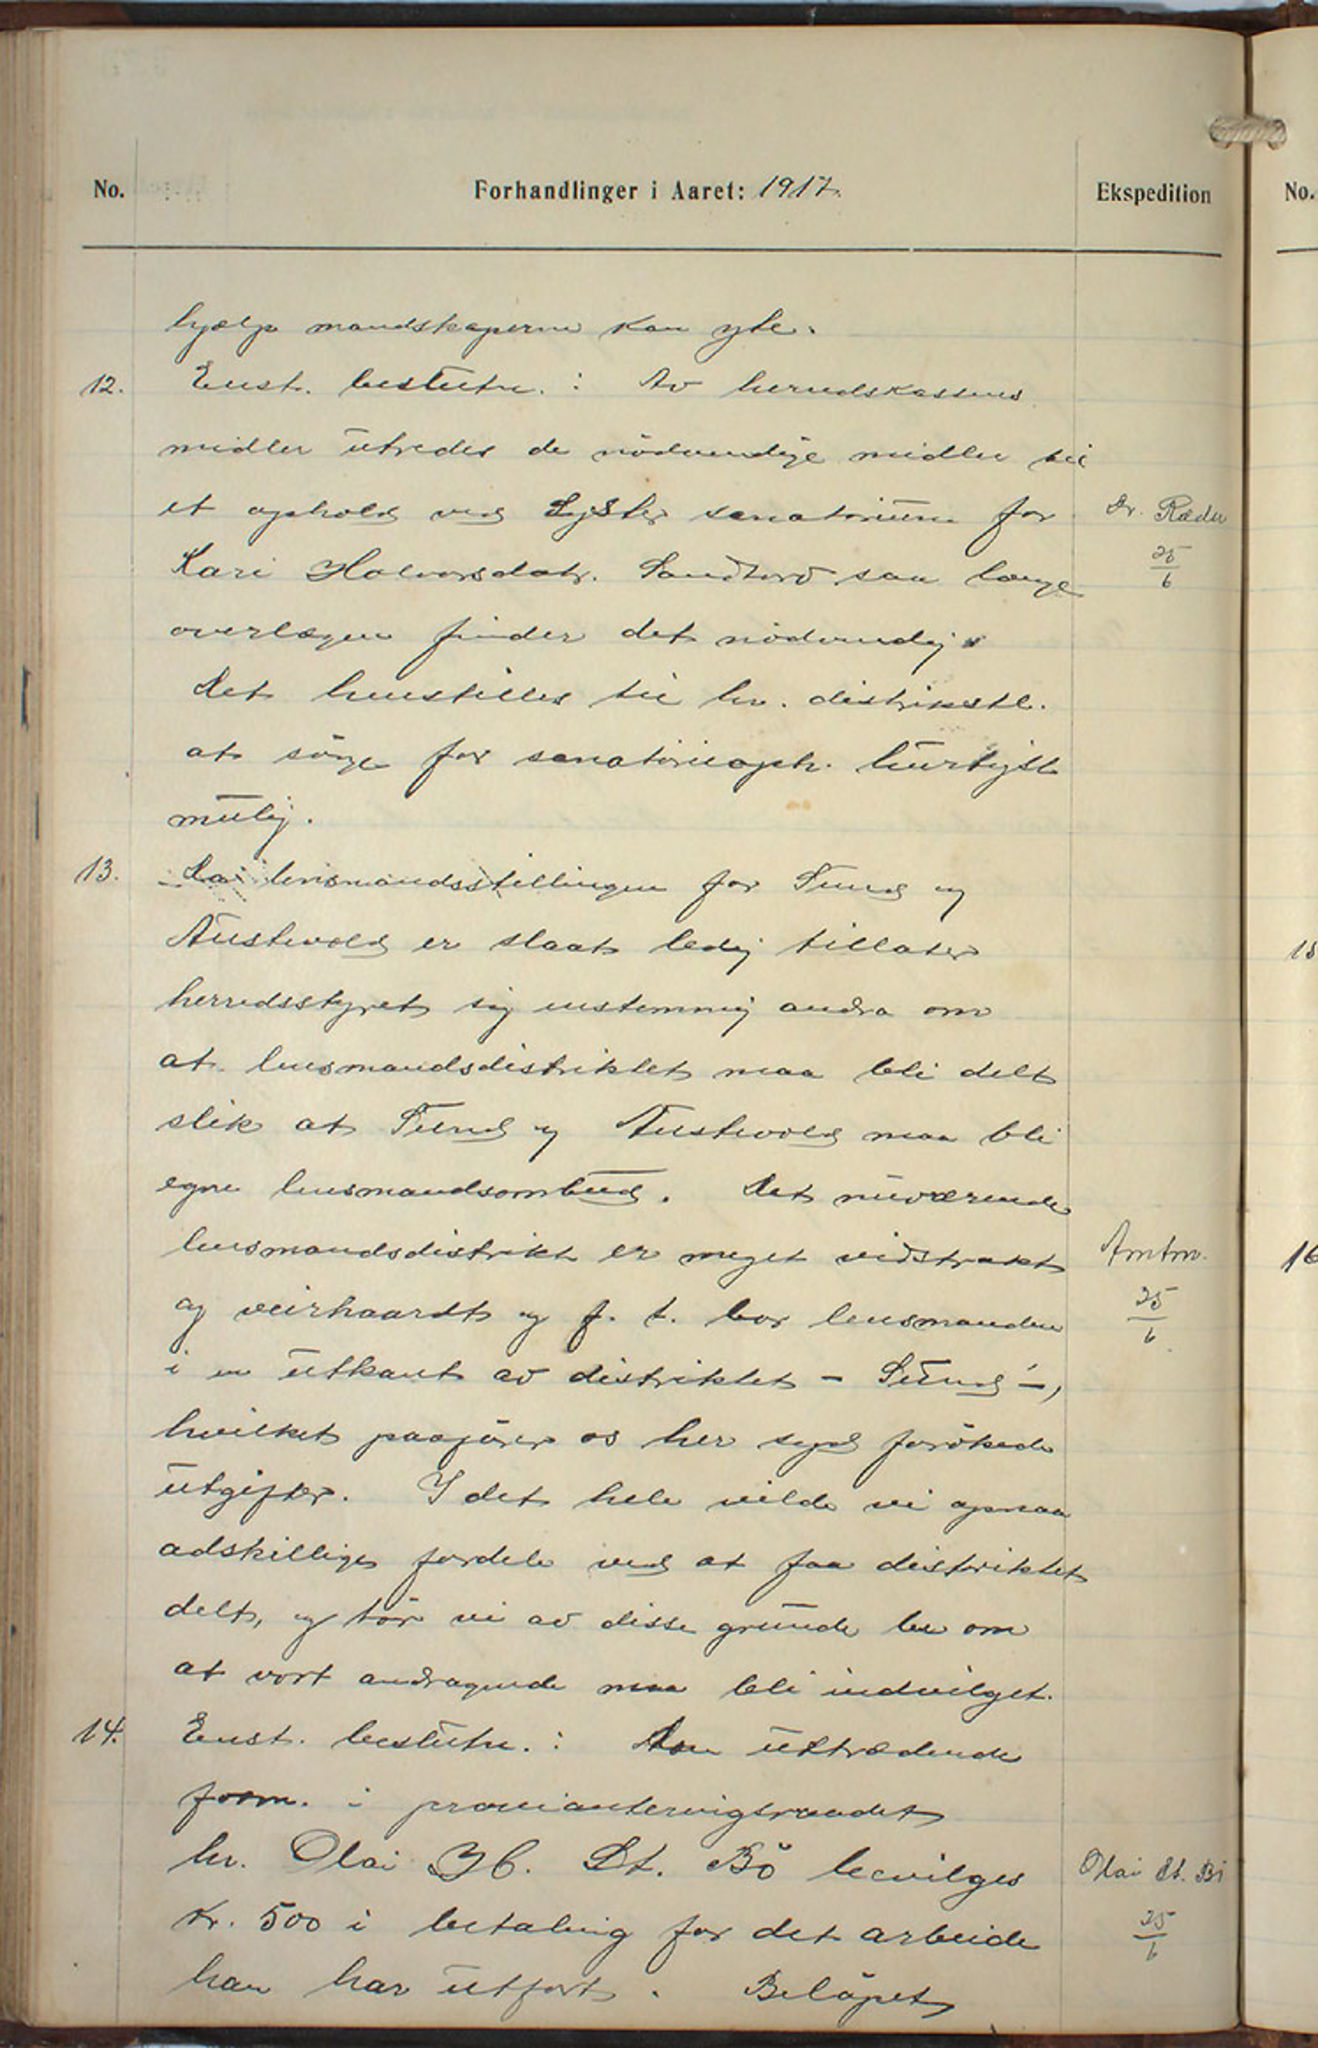 No.
Forhandlinger i Aaret: 1917.
Ekspedition
No.
hjælp mandskaperne kan yte.
12. Enst. beslutn.: Av herredskassens
midler utredes de nödvendige midler til
et ophold ved Lyster sanatorium for
Dr. Ræder
25/6
Kari Halvorsdatr. saa længe
overlægen finder det nödvendig.
Det henstilles til hr. distriktsl.
at sörge for sanatorieoph. hurtigst
mulig.
13. Da lensmandsstillingen for Sund og
Austevold er slaat ledig tillater
herredsstyret sig enstemmig andra om
at lensmandsdistriktet maa bli delt
slik at Sund og Austevold maa bli
egne lensmandsombud. Det nuværende
lensmandsdistrikt er meget vidstrakt
Amtm.
25/6
og veirhaardt og f. t. bor lensmanden
i en utkant av distriktet – Sund –,
hvilket paaförer os her syd forökede
utgifter. I det hele vilde vi opnaa
adskillige fordele ved at faa distriktet
delt, og tör vi av disse grunde be om
at vort andragende maa bli indvilget.
14. Enst. beslutn.: Den uttrædende
form. i provianteringsraadet
hr. Olai H. St. Bö bevilges
Olai St. Bö
25/6
Kr. 500 i betaling for det arbeide
han har utfort. Belöpet
15
16